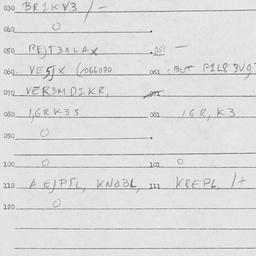 030 BR1KV3 / -
040 0
050 REJT3XLAX 051 -
060 VE5JX (066070 061 -BUT F1L8 3U9
070 VER3MD1KR, 071
080 1,GRK35 081 1GR, K3
090 0
100 0 101 0
110 AEJPTL, KN0BL, 111 K8EPL /+
120 0